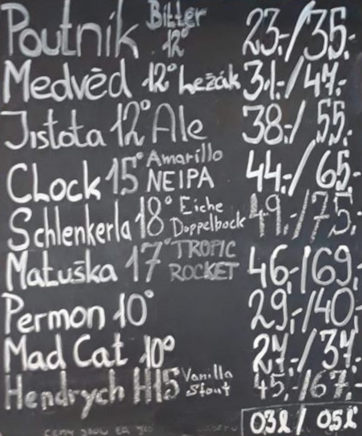 Poutník Bitter 12° 23,-/35,-
Medvěd 12° Ležák 31,-/47,-
Jistota 12° Ale 38,-/55,-
CLock 15° Amarillo NEIPA 44,-/65,-
Schlenkerla 18° Eiche Doppelbock 49,-/75,-
Matuška 17° TROPIC ROCKET 46,-/69,-
Permon 10° 29,-/40,-
Mad Cat 10° 27,-/37,-
Hendrych H15 Vanilla Stout 45,-/67,-
03l / 05l